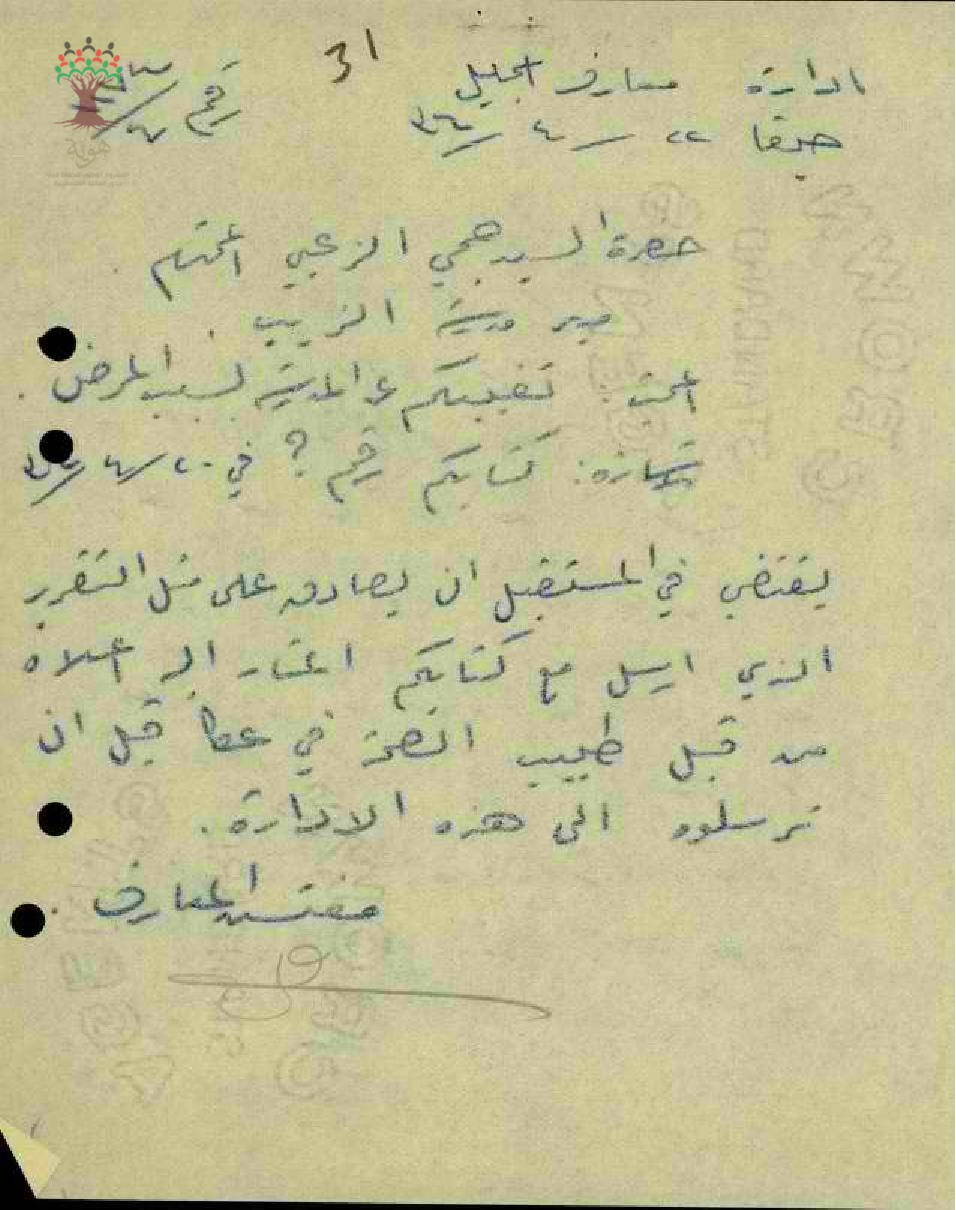 31
ادارة معارف الجليل
رقم
حيفا ٢٢ / ٤ / ٣٤
هوية
حضرة السيد فهمي الزعبي المحترم .
مدير مدرسة الزيب .
البحث تغيبكم عن المدرسة بسبب المرض .
الاشارة : كتابكم رقم ؟ في ٢٠ / ٤ / ٣٤
يقتضي في المستقبل ان يصادق على مثل التقرير
الذي ارسل مع كتابكم المشار اليه اعلاه
من قبل طبيب الصحة في عكا قبل ان
ترسلوه الى هذه الادارة .
مفتش المعارف .